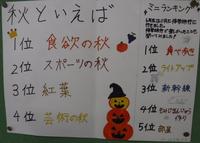 秋といえば
1位 食欲の秋
2位 スポーツの秋
3位 紅葉
4位 芸術の秋
ミニランキング
1位 食べ歩き
2位 ライトアップ
3位 新幹線
4位
5位 部屋